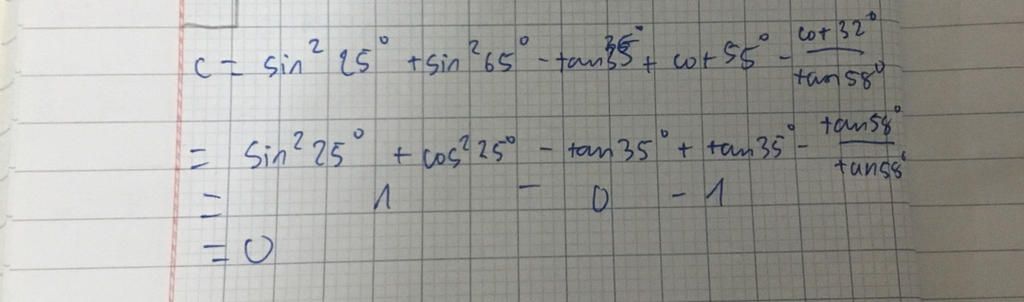 C = sin² 25° + sin² 65° - tan 35° + cot 55° - cot 32° / tan 58°
= sin² 25° + cos² 25° - tan 35° + tan 35° - tan 58° / tan 58°
= 1 - 0 - 1
= 0